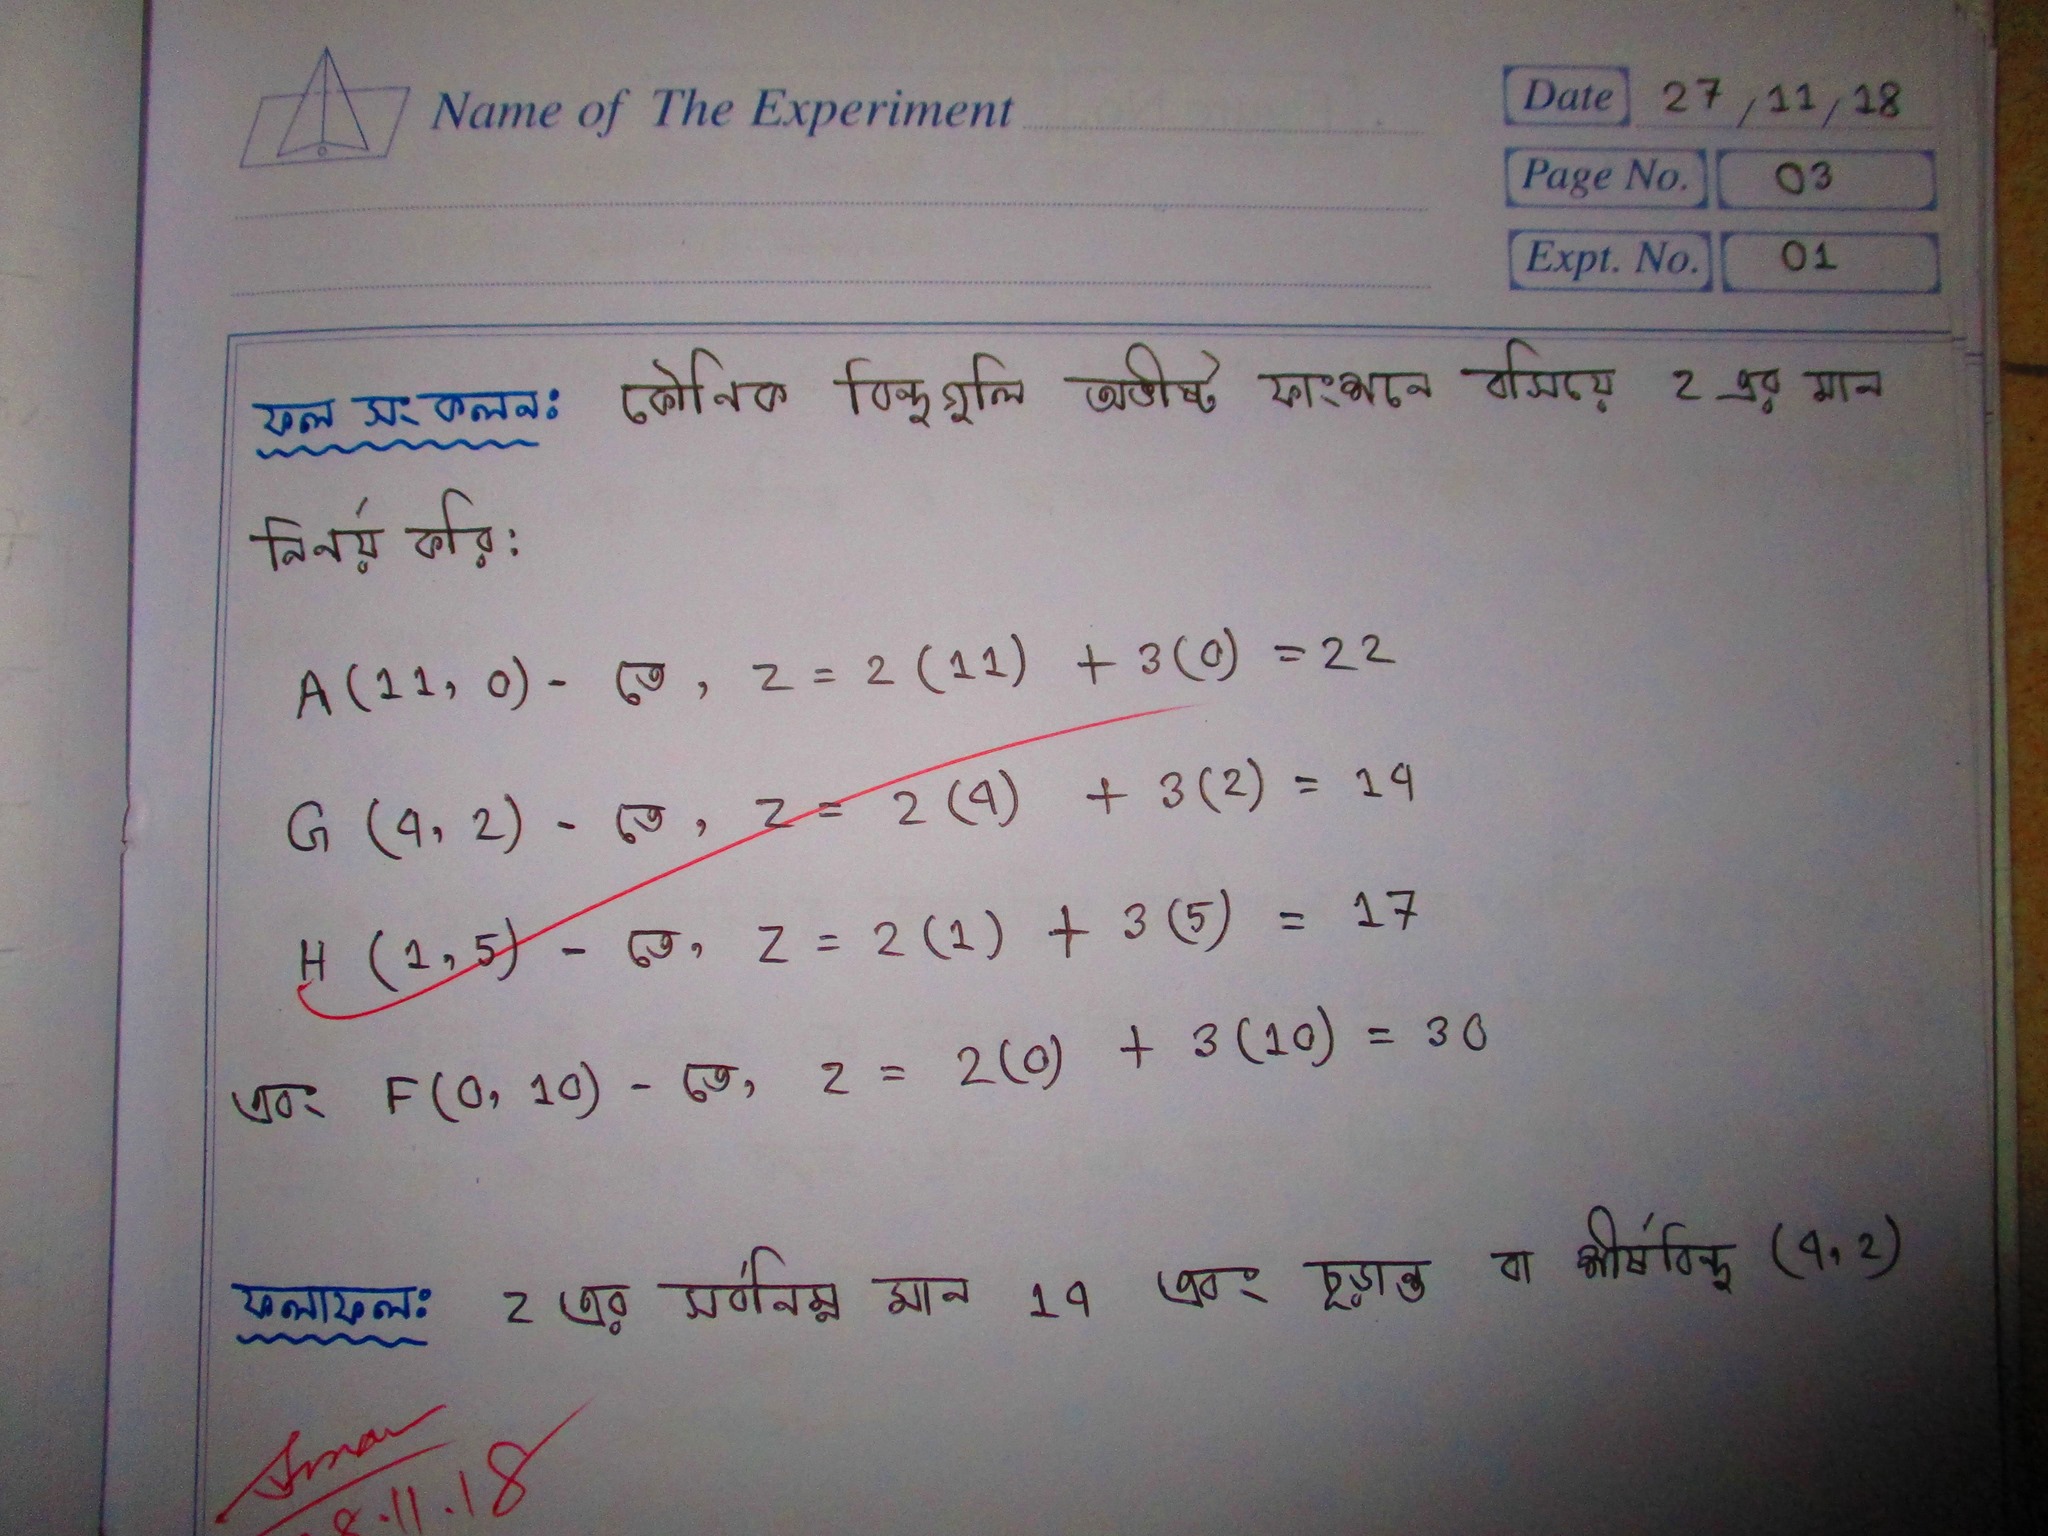 Name of The Experiment
Date 27/11/18
Page No. 03
Expt. No. 01
ফল সংকলনঃ কৌনিক বিন্দুগুলি অভীষ্ট ফাংশনে বসিয়ে z এর মান
নির্নয় করি:
A(11, 0) - তে, z = 2(11) + 3(0) = 22
G (4, 2) - তে, z = 2(4) + 3(2) = 14
H (1, 5) - তে, z = 2(1) + 3(5) = 17
এবং F(0, 10) - তে, z = 2(0) + 3(10) = 30
ফলাফলঃ z এর সর্বনিম্ন মান 14 এবং চূড়ান্ত বা শীর্ষবিন্দু (4, 2)
8.11.18